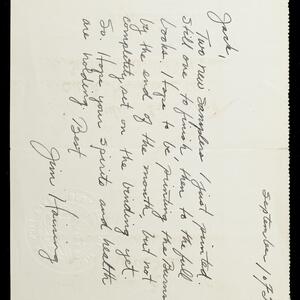 September 10
Jack,
Two new samplers I just printed.
Still one to finish, then to the full
books. Hope to be printing the
by the end of the month, but not
completely set on the binding yet.
So. Hope your spirits and health
are holding. Best
Jim Haining